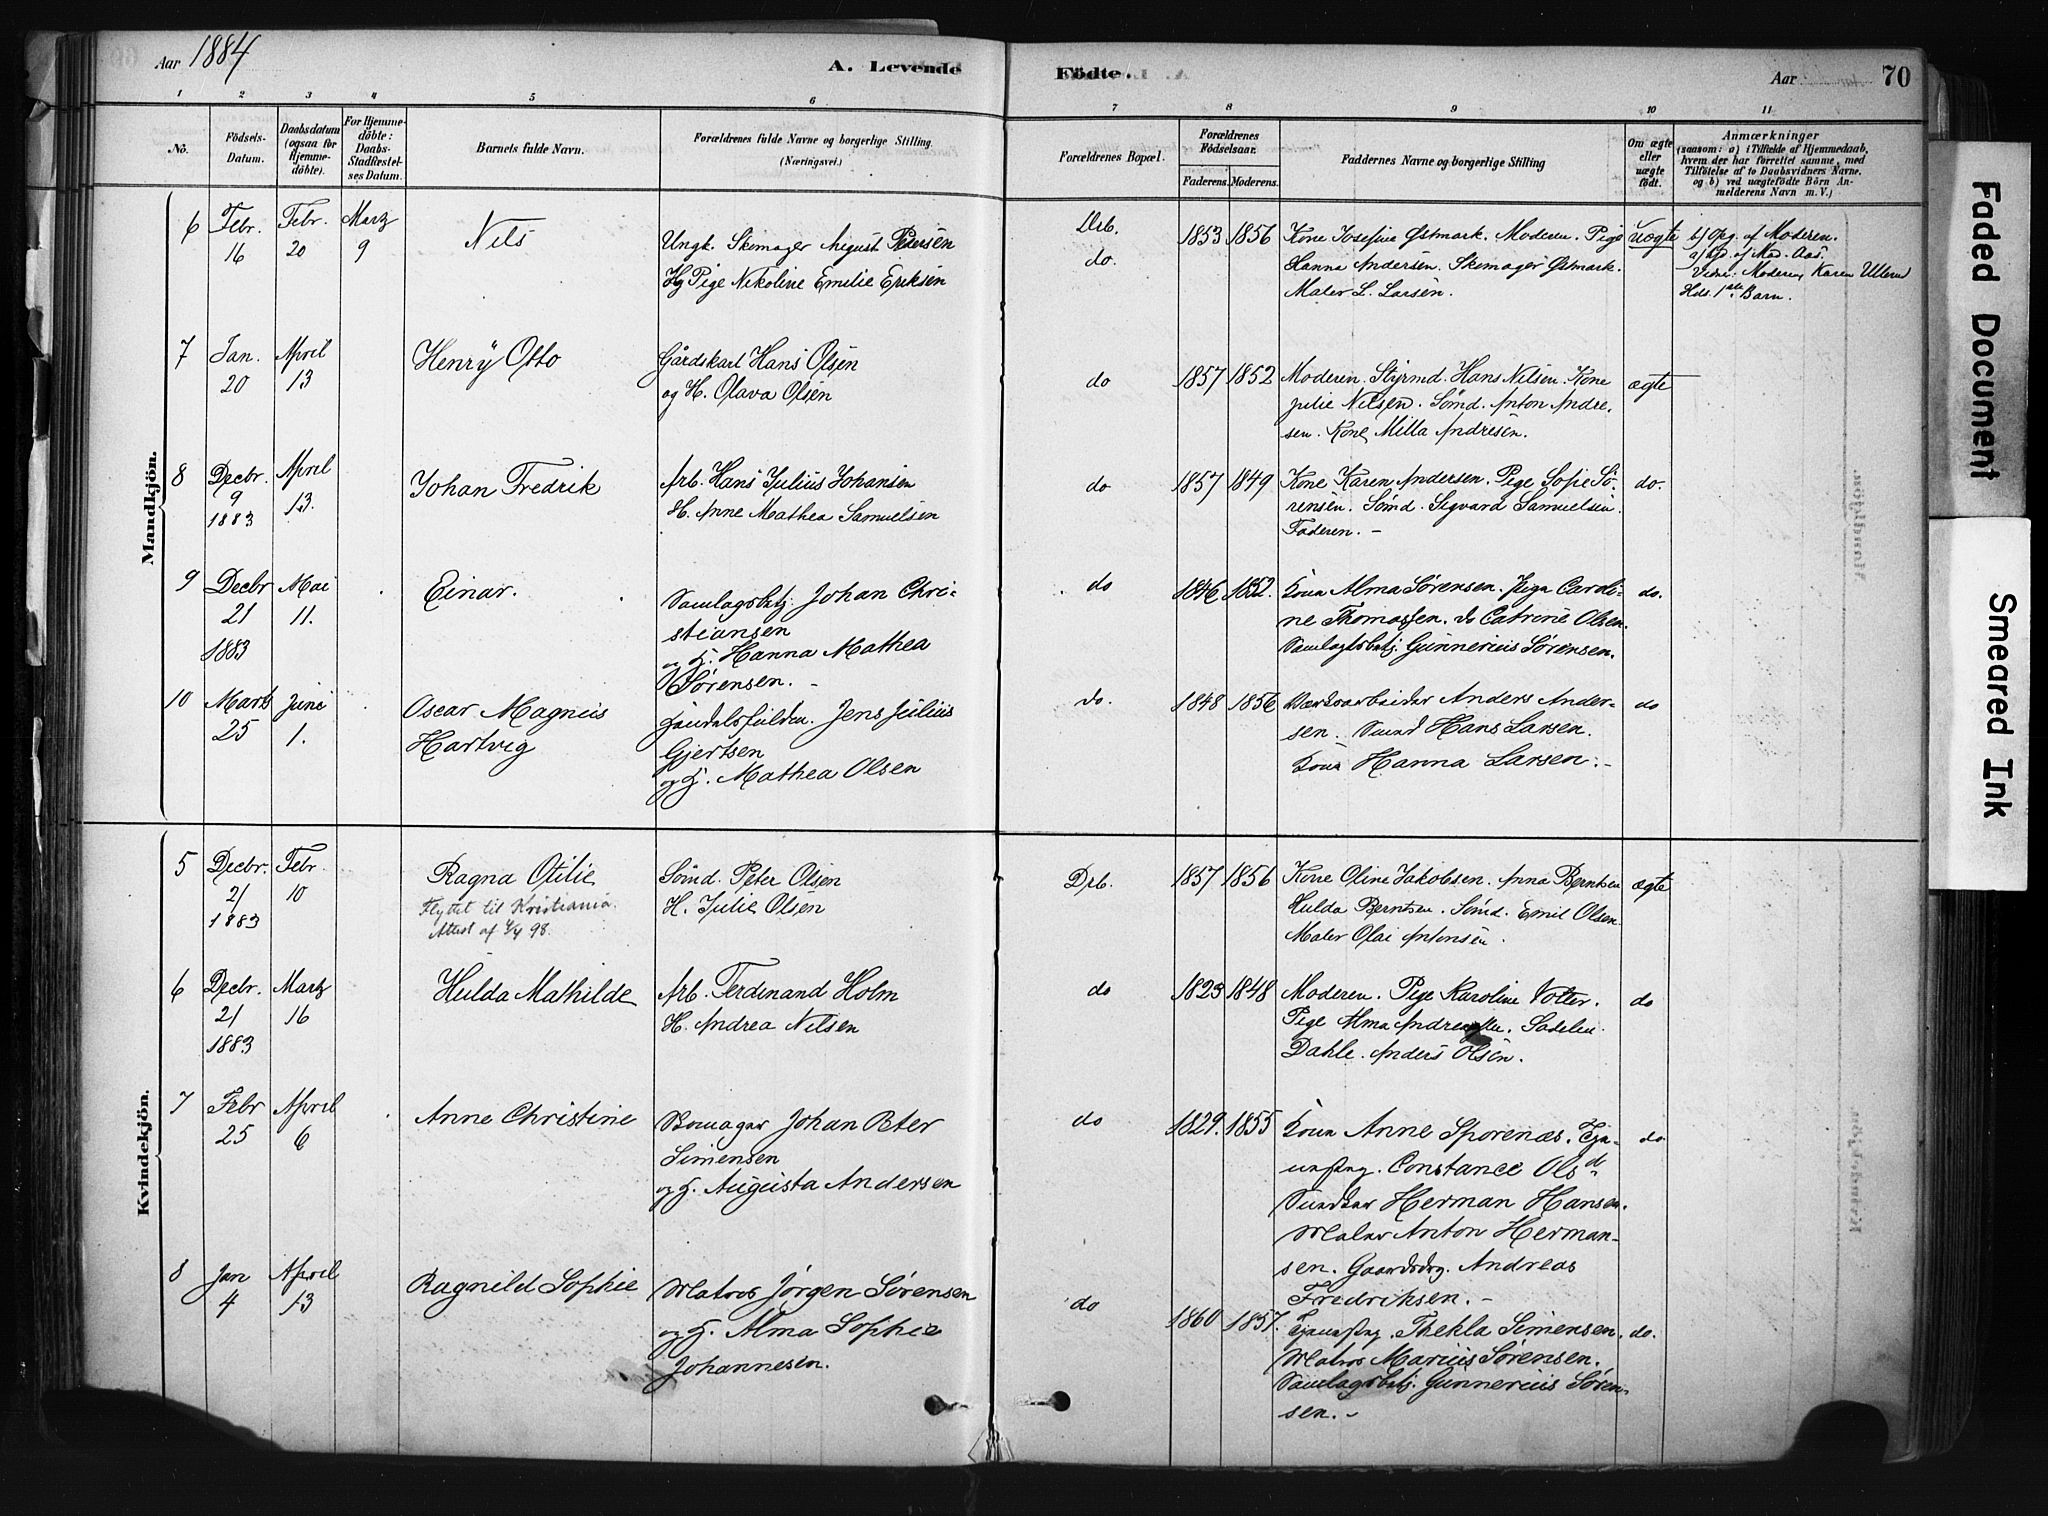 Aar 1884
A. Levende Födte.
Aar 70
1 2 3 4 5 6 7 8 9 10 11
No.
Födsels-Datum.
Daabsdatum (ogsaa for Hjemmedöbte).
For Hjemmedöbte: Daabs-Stadfæstelses Datum.
Barnets fulde Navn.
Forældrenes fulde Navne og borgerlige Stilling. (Næringsvei.)
Forældrenes Bopæl.
Forældrenes Födselsaar.
Faderens. Moderens.
Faddernes Navne og borgerlige Stilling
Om ægte eller uægte födt.
Anmærkninger (saasom: a) i Tilfælde af Hjemmedaab, hvem der har forrettet samme, med Tilföielse af to Daabsvidners Navne, og b) ved uægtefödte Börn Anmelderens Navn m. V.)
Mandkjön.
6 Febr. 16 Febr. 20 Martz 9
Nils
Ungk. Skomager August Petersen
Pige Nikoline Emilie Eriksen
Drb.
do.
1853 1856
Kone Josefine Østmark. Moderen. Pige
Hanna Andersen. Skomager Østmark.
Maler L. Larsen.
Uægte
b) Opg. af Moderen.
a) af Mad. Aas.
Vidner: Moderen, Karen Ullerud
1ste Barn.
7 Jan. 20 April 13
Henry Otto
Gårdskarl Hans Olsen
og H. Olava Olsen
do
1857 1852
Moderen. Styrmd. Hans Nilsen. Kone
Julie Nilsen. Sømd. Anton Andre-
sen. Kone Milla Andresen.
ægte
8 Decbr. 9 1883 April 13.
Johan Fredrik
Arb. Hans Julius Johansen
H. Anne Mathea Samuelsen
do
1857 1849
Kone Karen Andersen. Pige Sofie Sö-
rensen. Sømd. Sigvard Samuelsen.
Faderen. -
do.
9 Decbr 21 1883 Mai 11.
Einar.
Samlagsbetj. Johan Chri-
stiansen
og H. Hanna Mathea
Sørensen. -
do
1846 1852.
Kone Alma Sørensen. Pige Caroli-
ne Thomassen. do Catrine Olsen.
Samlagsbetj. Gunnerius Sørensen.
do.
10 Marts 25 Juni 1.
Oscar Magnus
Hartvig
Handelsfuldm. Jens Julius
Gjertsen
og H. Mathea Olsen
do.
1848 1856
Værksarbeider Anders Ander-
sen. Sømd Hans Larsen.
Kone Hanna Larsen. -
do
Kvindekjön.
5 Decbr. 21 1883 Febr. 10
Ragna Otilie
Flyttet til Kristiania.
Attest af 4/4 98.
Sømd. Peter Olsen
H. Julie Olsen
Drb.
1857 1856
Kone Oline Jakobsen. Anna Berntsen
Hulda Berntsen. Sømd. Emil Olsen
Maler Olai Antonsen.
ægte
6 Decbr. 21 1883 Martz 16
Hulda Mathilde
Arb. Ferdinand Holm
H. Andrea Nilsen
do
1823 1848
Moderen. Pige Karoline Volter.
Pige Alma
Dahle. Anders Olsen.
do
7 Febr 25 April 6
Anne Christine
Skomager Johan Peter
Simensen
og H. Augusta Andersen
do
1829. 1855
Kone Anne Sporenæs. Tje-
nestpg. Constance Olsd.
Snedker Herman Hansen.
Maler Anton Herman-
sen. Gaardsdrg. Andreas
Fredriksen. -
do
8 Jan 4 April 13
Ragnild Sophie
Matros Jørgen Sørensen
og H. Alma Sophie
Johannesen.
do
1860 1857.
Tjenestpg. Thekla Simensen.
Matros Marius Sørensen.
Samlagsbetj. Gunnerius Søren-
sen. -
do.
Faded Document
Smeared Ink